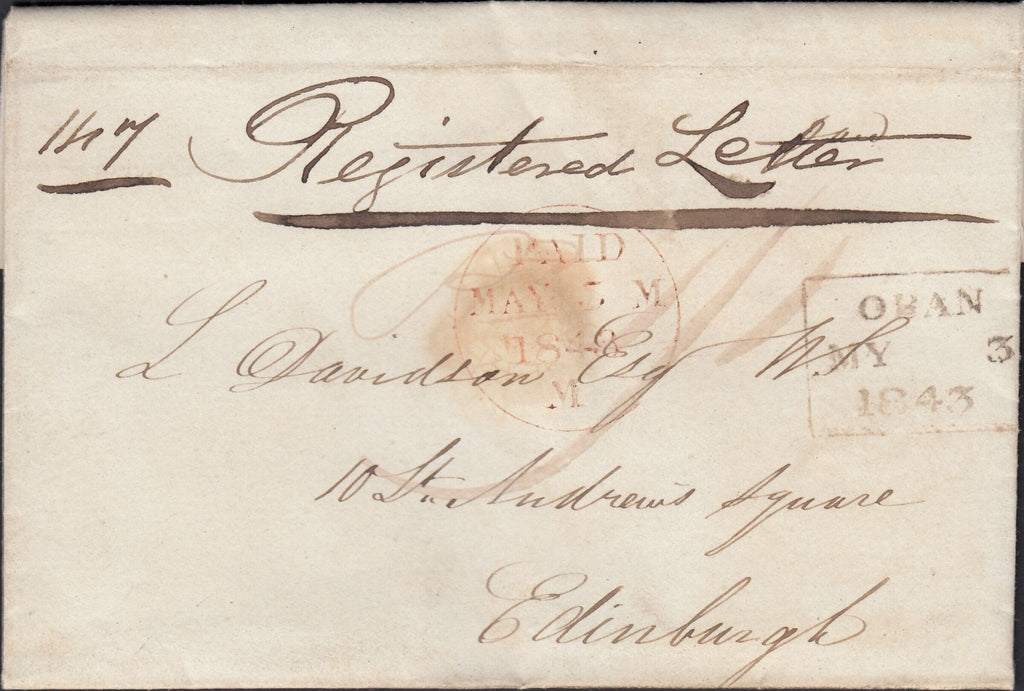 147 Registered Letter
PAID
MAY 5 M
1843
M
OBAN
MY 3
1843
L Davidson Esq WS
10 St. Andrew's Square
Edinburgh